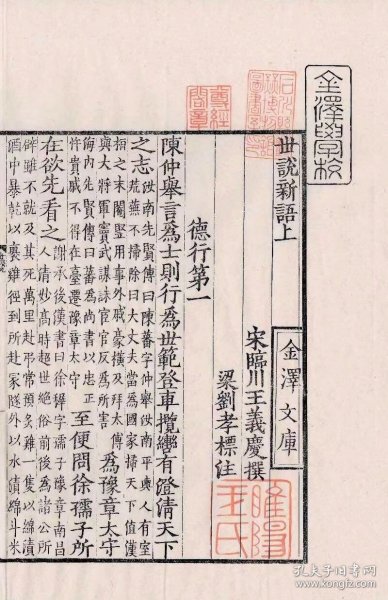 金澤學校
世說新語上
金澤文庫
宋臨川王義慶撰
梁劉孝標注
睢陽王氏
尊經閣章
德行第一
陳仲舉言爲士則行爲世範登車攬轡有澄清天下
之志汝南先賢傳曰陳蕃字仲舉汝南平輿人有室
荒蕪不掃除曰大丈夫當爲國家掃天下值漢
桓之末閹豎用事外戚豪橫及拜太傅
與大將軍竇武謀誅宦官反爲所害爲豫章太守
海內先賢傳曰蕃爲尚書以忠正
忤貴戚不得在臺遷豫章太守至便問徐孺子所
在欲先看之謝承後漢書曰徐穉字孺子豫章南昌
人清妙高時超世絕俗前後爲諸公所
辟雖不就及其死萬里赴弔常預炙雞一隻以綿漬
酒中暴乾以裹雞徑到所赴冢隧外以水漬綿斗米
孔夫子旧书网
book.kongfz.com